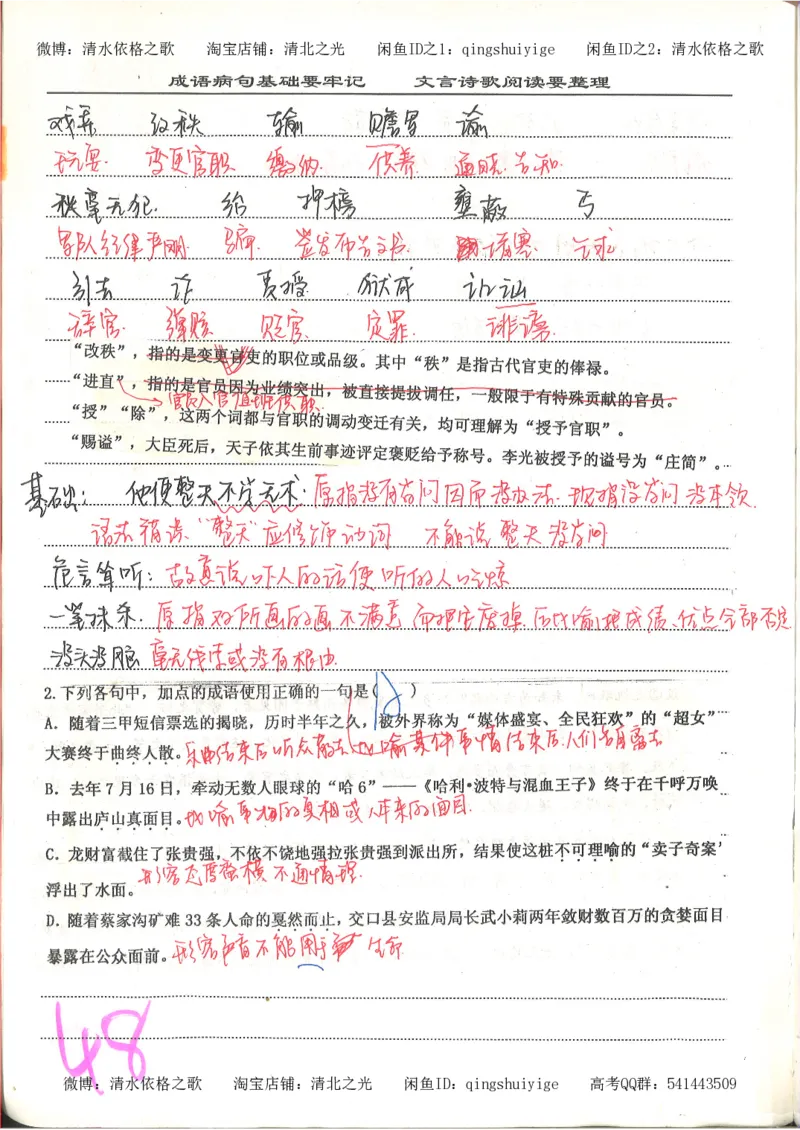 微博：清水依格之歌 淘宝店铺：清北之光 闲鱼ID之1：qingshuiyige 闲鱼ID之2：清水依格之歌
成语病句基础要牢记 文言诗歌阅读要整理
戏弄 改秩 输 赡 谕
玩耍 变更官职 缴纳 供养 通晓.告知.
秋毫无犯. 给 押榜 壅蔽 丐
军队纪律严明. 签发布告文书 堵塞 乞求
引去 诈 责授 狱成 讪
辞官 贬官 定罪. 诽谤.
“改秩”，指的是变更官吏的职位或品级。其中“秩”是指古代官吏的俸禄。
“进直”，指的是官员因为业绩突出，被直接提拔调任，一般限于有特殊贡献的官员。
官员入宫值班供职
“授”“除”，这两个词都与官职的调动变迁有关，均可理解为“授予官职”。
“赐谥”，大臣死后，天子依其生前事迹评定褒贬给予称号。李光被授予的谥号为“庄简”。
基础： 他便整天不学无术：原指没有学问因而没办法.现指没学问没本领.
语法错误.“整天”应修饰动词 不能说整天没学问
危言耸听：故意说吓人的话使听的人吃惊
一笔抹杀.原指对所画的画不满意而把它废掉.后比喻把成绩、优点全部否定
没头没脑 毫无线索或没有根由.
2.下列各句中，加点的成语使用正确的一句是( B )
A．随着三甲短信票选的揭晓，历时半年之久，被外界称为“媒体盛宴、全民狂欢”的“超女”
大赛终于曲终人散。乐曲结束后听众散去.比喻某件事情结束后.人们各自离去
B．去年7月16日，牵动无数人眼球的“哈6”——《哈利•波特与混血王子》终于在千呼万唤
中露出庐山真面目。比喻事物的真相或人本来的面目.
C．龙财富截住了张贵强，不依不饶地强拉张贵强到派出所，结果使这桩不可理喻的“卖子奇案’
形容态度蛮横 不通情理.
浮出了水面。
D．随着蔡家沟矿难33条人命的戛然而止，交口县安监局局长武小莉两年敛财数百万的贪婪面目
暴露在公众面前。形容声音不能用于 生命
48
微博：清水依格之歌 淘宝店铺：清北之光 闲鱼ID：qingshuiyige 高考QQ群：541443509